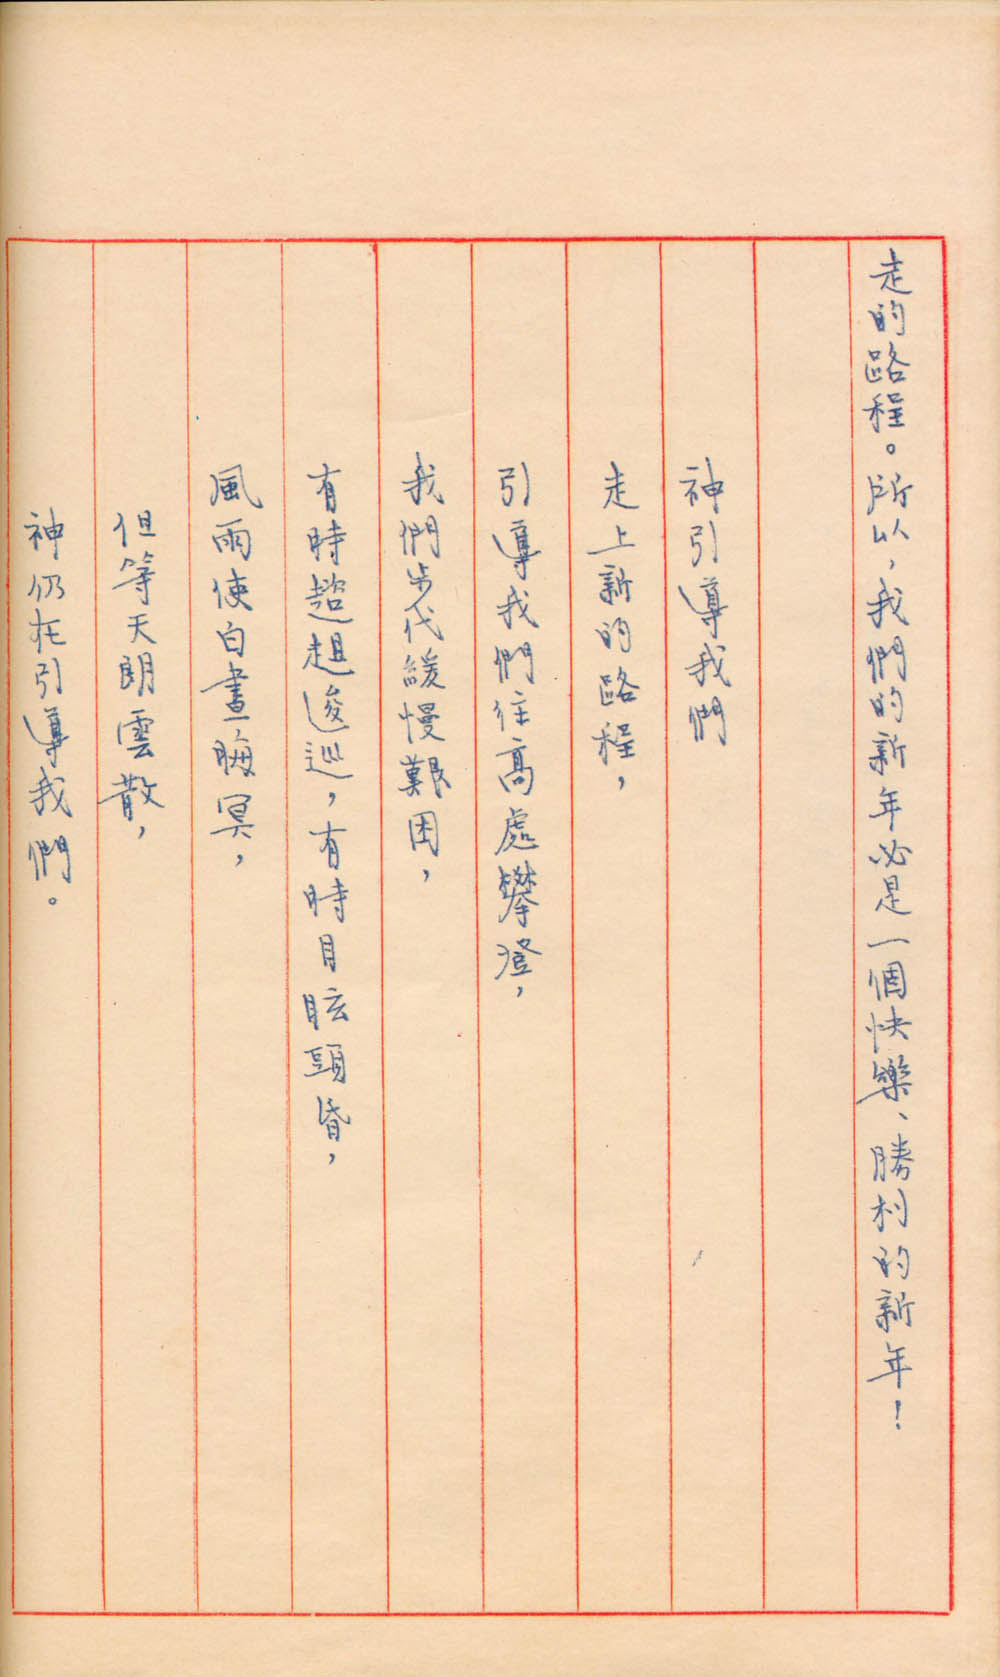 走的路程。所以，我們的新年必是一個快樂、勝利的新年！
神引導我們
走上新的路程，
引導我們往高處攀登，
我們步代緩慢艱困，
有時趦趄逡巡，有時目眩頭昏，
風雨使白晝晦冥，
但等天朗雲散，
神仍在引導我們。